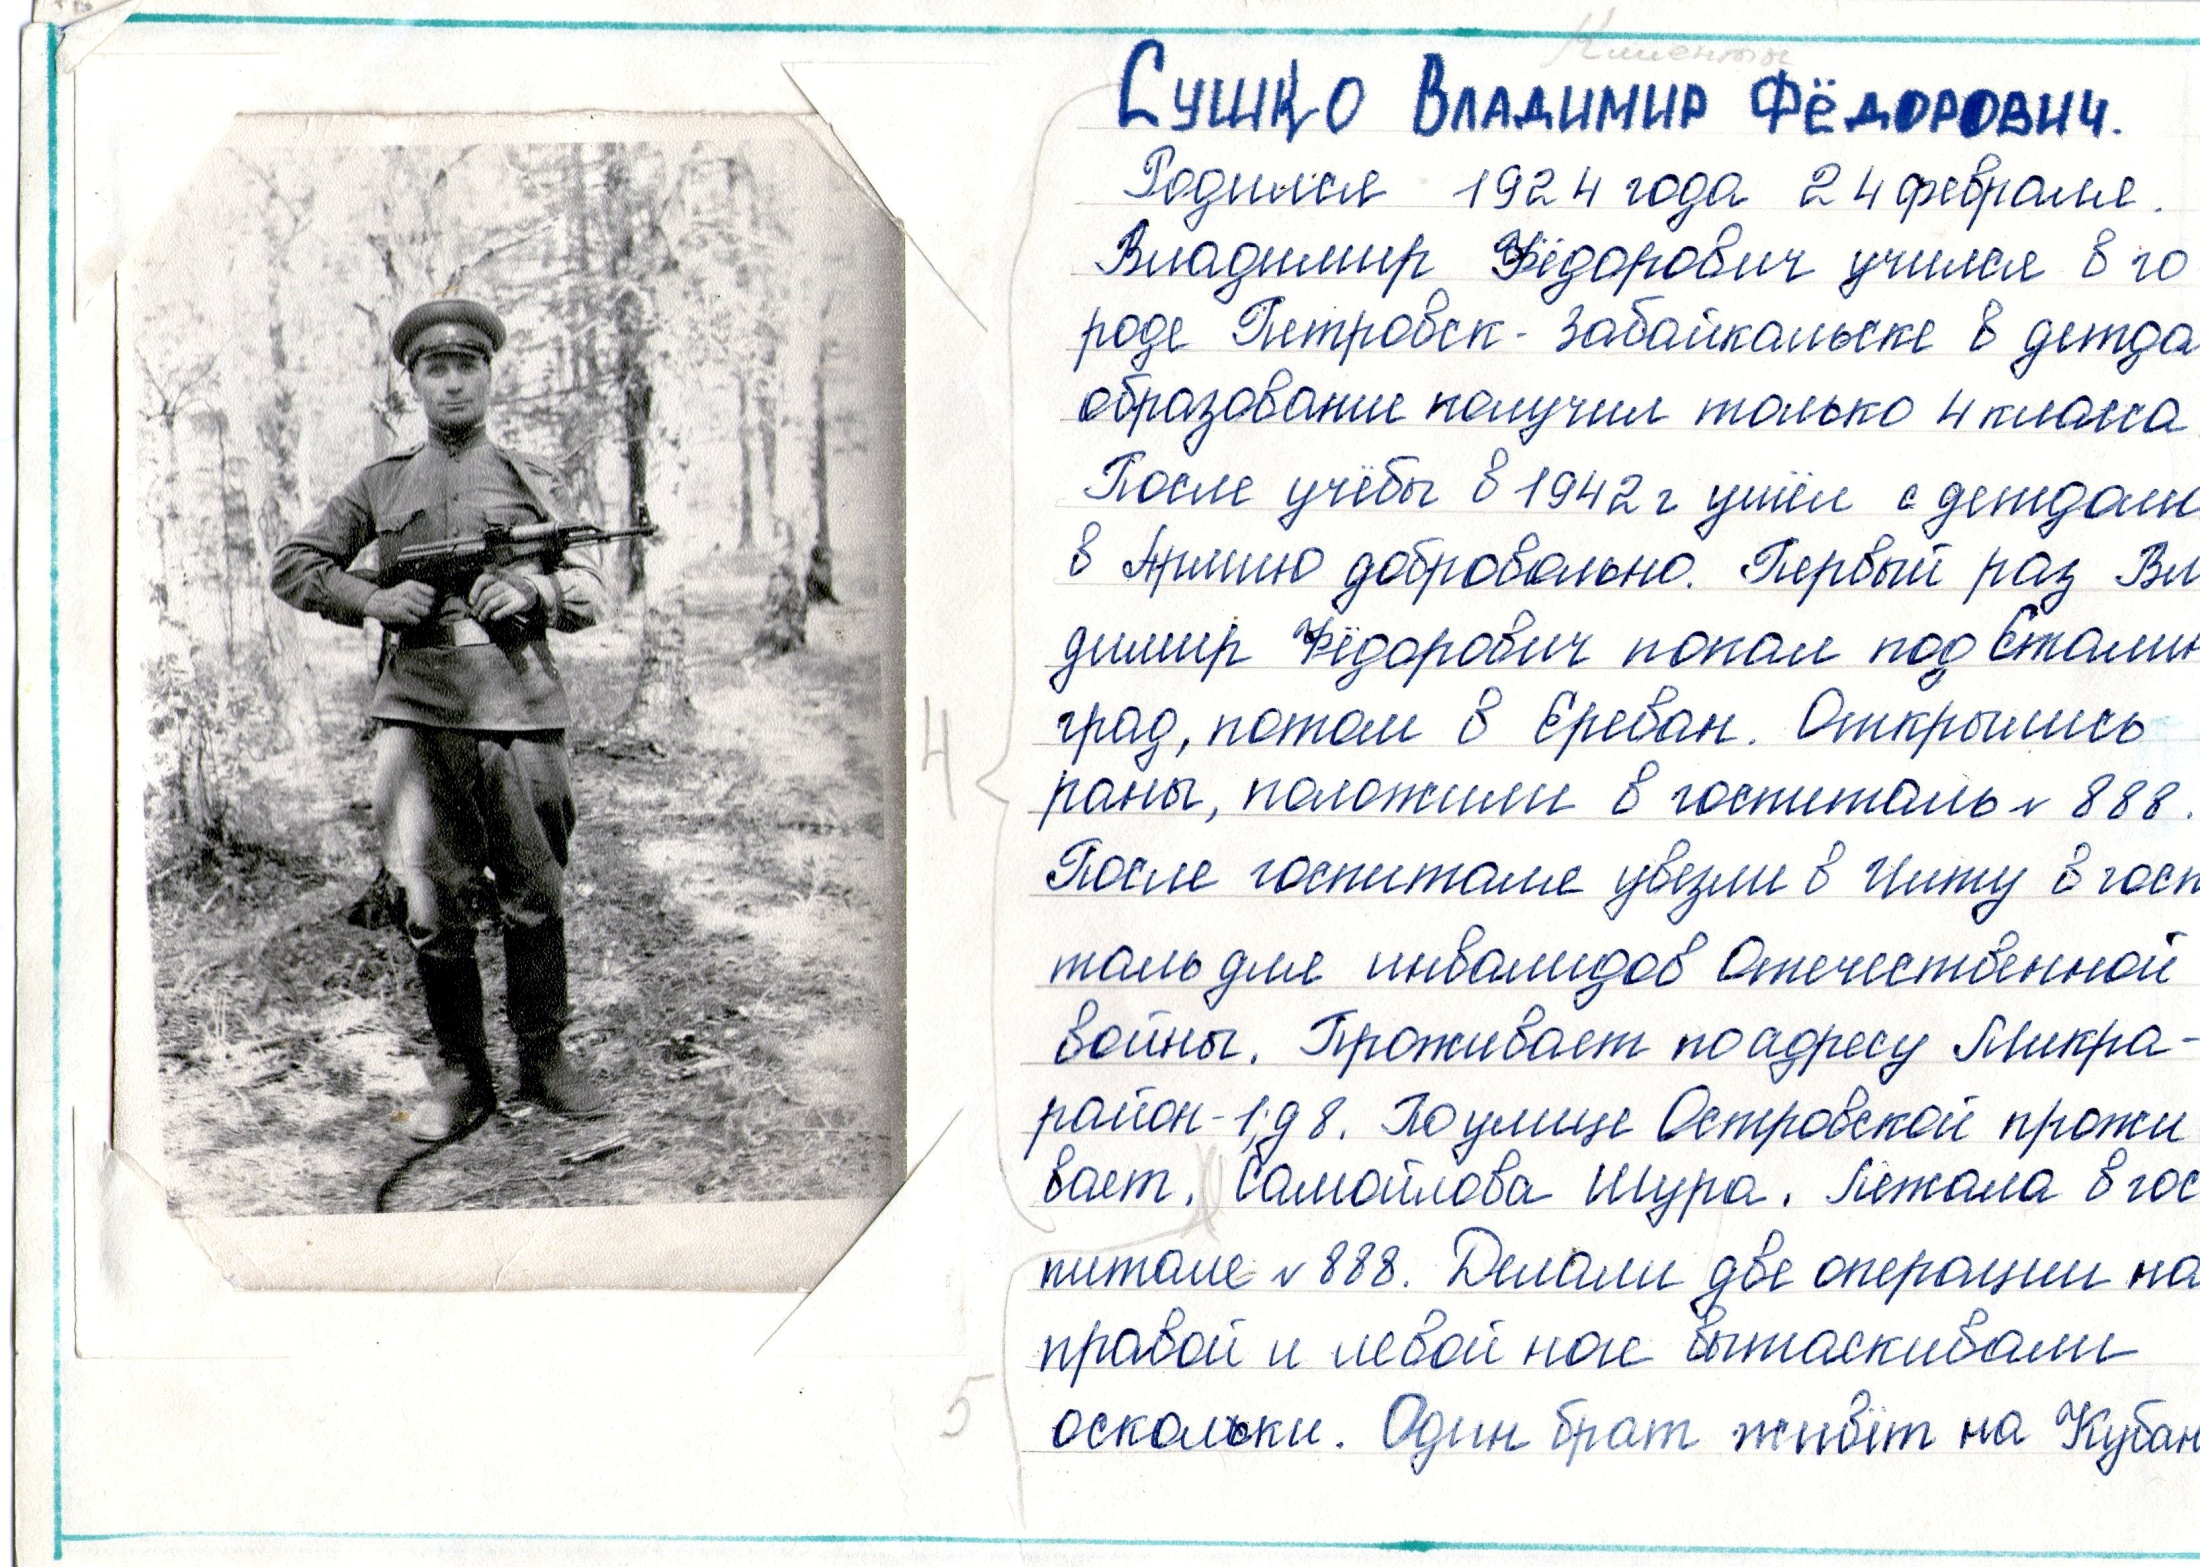 Клиенты
Сушко Владимир Фёдорович.
Родился 1924 года 24 февраля.
Владимир Фёдорович учился в го
роде Петровск-Забайкальске в детда
образование получил только 4 класса
После учёбы в 1942 г ушёл с детдом
в Армию добровольно. Первый раз Вл
димир Фёдорович попал под Сталин
град, потом в Ереван. Открылись
4
раны, положили в госпиталь № 888.
После госпиталя увезли в Читу в госп
таль для инвалидов Отечественной
войны. Проживает по адресу Микра-
район-1, д 8. По улице Островской прожи
вает. Самойлова Шура. Лежала в гос
питале № 888. Делали две операции на
правой и левой ноге вытаскивали
5
осколки. Один брат живёт на Кубан